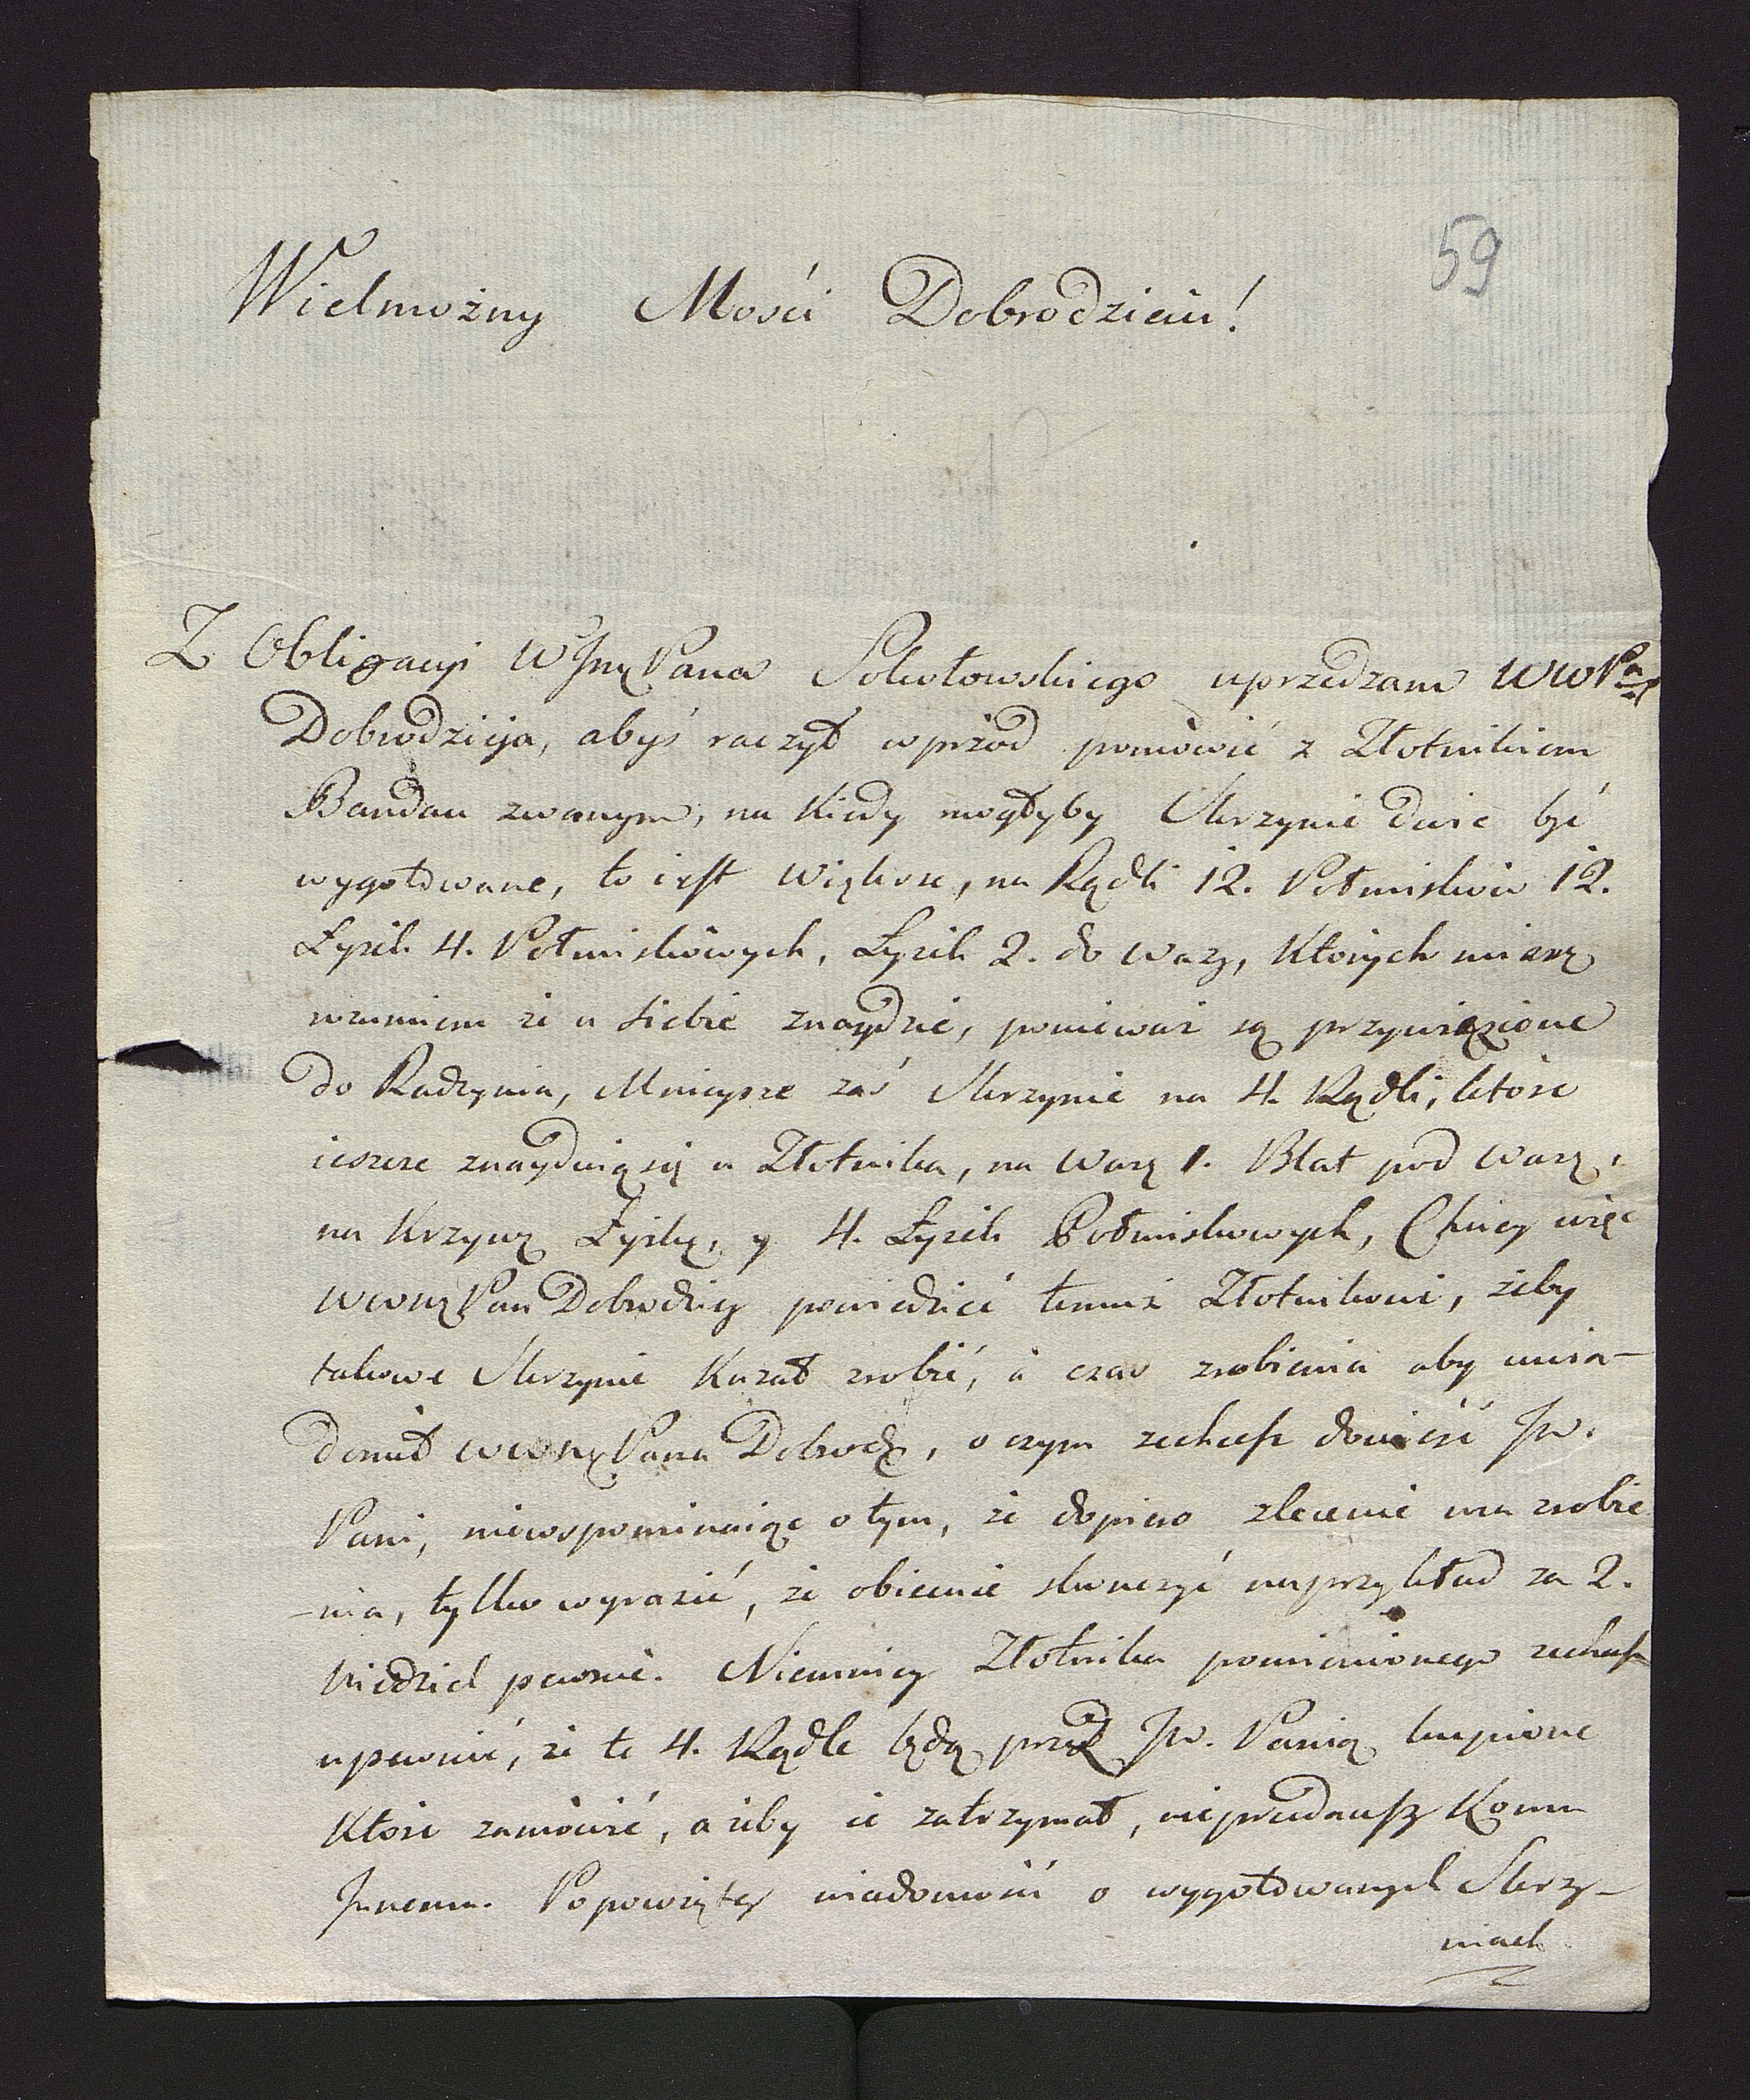 59
Wielmożny Mości Dobrodzieiu!
Z Obligacyi WJmę Pana Sokołowskiego uprzedzam WWPa
Dobrodzieja, abyś raczył wprzód pomówić z Złotnikiem
Bandau zwanym, na kiedy mogłyby Skrzynie dwie być
wygotowane, to iest większe, na Rądli 12. Półmisków 12.
Łyżek 4. Półmiskowych, Łyżek 2. do wazy, których miarę
rozumiem że u siebie znaydzie, ponieważ są przywiezione
do Radzynia, Mnieysze zaś Skrzynie na 4. Rądli, które
ieszcze znayduią się u Złotnika, na Wazę 1. Blat pod wazę,
na Krzywą Łyżkę, y 4. Łyżek Półmiskowych, Chciey więc
WWMę Pan Dobrodziey powiedzieć temuż Złotnikowi, żeby
takowe Skrzynie kazał zrobić, a czas zrobienia aby uwia-
domił WWMę Pana Dobrodz, o czym zechcesz donieść Jw.
Pani, niewspominaiąc o tym, że dopiero zlecenie ma zrobie
-nia, tylko wyrazić, że obiecuie skończyć naprzykład za 2.
Niedziel pewnie. Niemniey Złotnika pomienionego zechcesz
upewnić, że te 4. Rądle będą przez Jw. Panią kupione
które zamówić, a żeby ie zatrzymał, nieprzedaiąc komu
Jnnemu. Po powziętey wiadomości o wygotowanych Skrzy-
niach